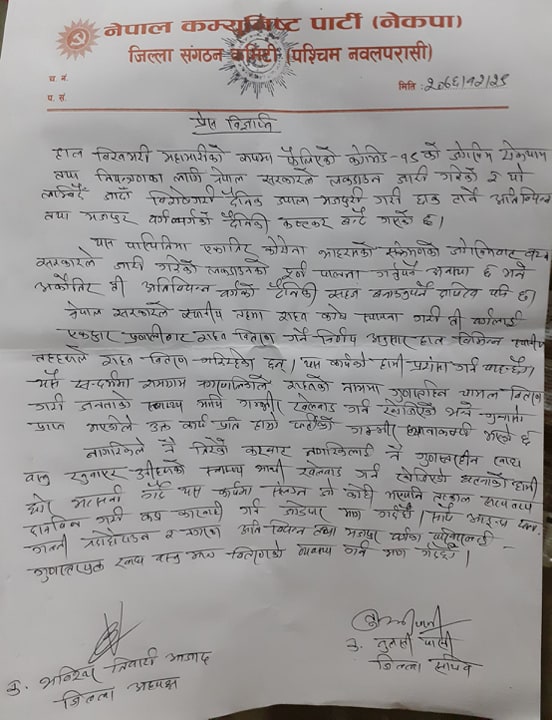 नेपाल कम्युनिष्ट पार्टी (नेकपा)
जिल्ला संगठन कमिटी (पश्चिम नवलपरासी)
च. नं.
प. सं.
मिति : २०७६/१२/२९
प्रेस विज्ञप्ति
हाल विश्वभरी महामारीको रूपमा फैलिएको कोभिड-१९ को जोखिम रोकथाम
तथा नियन्त्रणका लागि नेपाल सरकारले लकडाउन जारी गरेको २ यो
जाँदा विशेषगरी दैनिक ज्याला मजदुरी गरी छाक टार्ने अतिविपन्न
तथा मजदुर वर्गको दैनिकी कष्टकर बन्दै गएको छ।
यस परिस्थितिमा एकातिर कोरोना भाइरसको संक्रमणको जोखिमबाट बच्न
सरकारले जारी गरेको लकडाउनको पूर्ण पालना गर्नुपर्ने अवस्था छ भने
अर्कोतिर ती अतिविपन्न वर्गको दैनिकी सहज बनाउनुपर्ने दायित्व पनि छ।
नेपाल सरकारले स्थानीय तहमा राहत कोष स्थापना गरी ती वर्गलाई
एकद्वार प्रणालीबाट राहत वितरण गर्ने निर्णय अनुसार हाल विभिन्न स्थानीय
तहहरूले राहत वितरण गरिरहेका छन्। यस कार्यको हामी प्रशंसा गर्न चाहन्छौं।
यसै सन्दर्भमा रामग्राम नगरपालिकाले राहतको नाममा गुणस्तरहिन चामल वितरण
गरी जनताको स्वास्थ्य माथि गम्भीर खेलवाड गर्न खोजिएको भन्ने गुनासो
प्राप्त भएकोले उक्त कार्य प्रति हाम्रो पार्टीको गम्भीर ध्यानाकर्षण भएको छ
नागरिकले नै तिरेको करबाट नागरिकलाई नै गुणस्तरहीन खाद्य
वस्तु माथी खेलवाड गर्न खोजिएको घटनाको हामी
घोर भर्त्सना गर्दै यस कार्यमा संलग्न जो कोही भएपनि तत्काल सत्यतथ्य
छानविन गरी कडा कारवाही गर्न जोडदार माग गर्दछौं। साथै
गल्ती नदोहोर्याउन र नगरका अति विपन्न तथा मजदुर वर्गका
गुणस्तरयुक्त खाद्य वस्तु वितरणको व्यवस्था गर्न माग गर्दछौं।
क. त्रिपाठी आजाद
जिल्ला अध्यक्ष
क. तुलसी पासी
जिल्ला सचिव